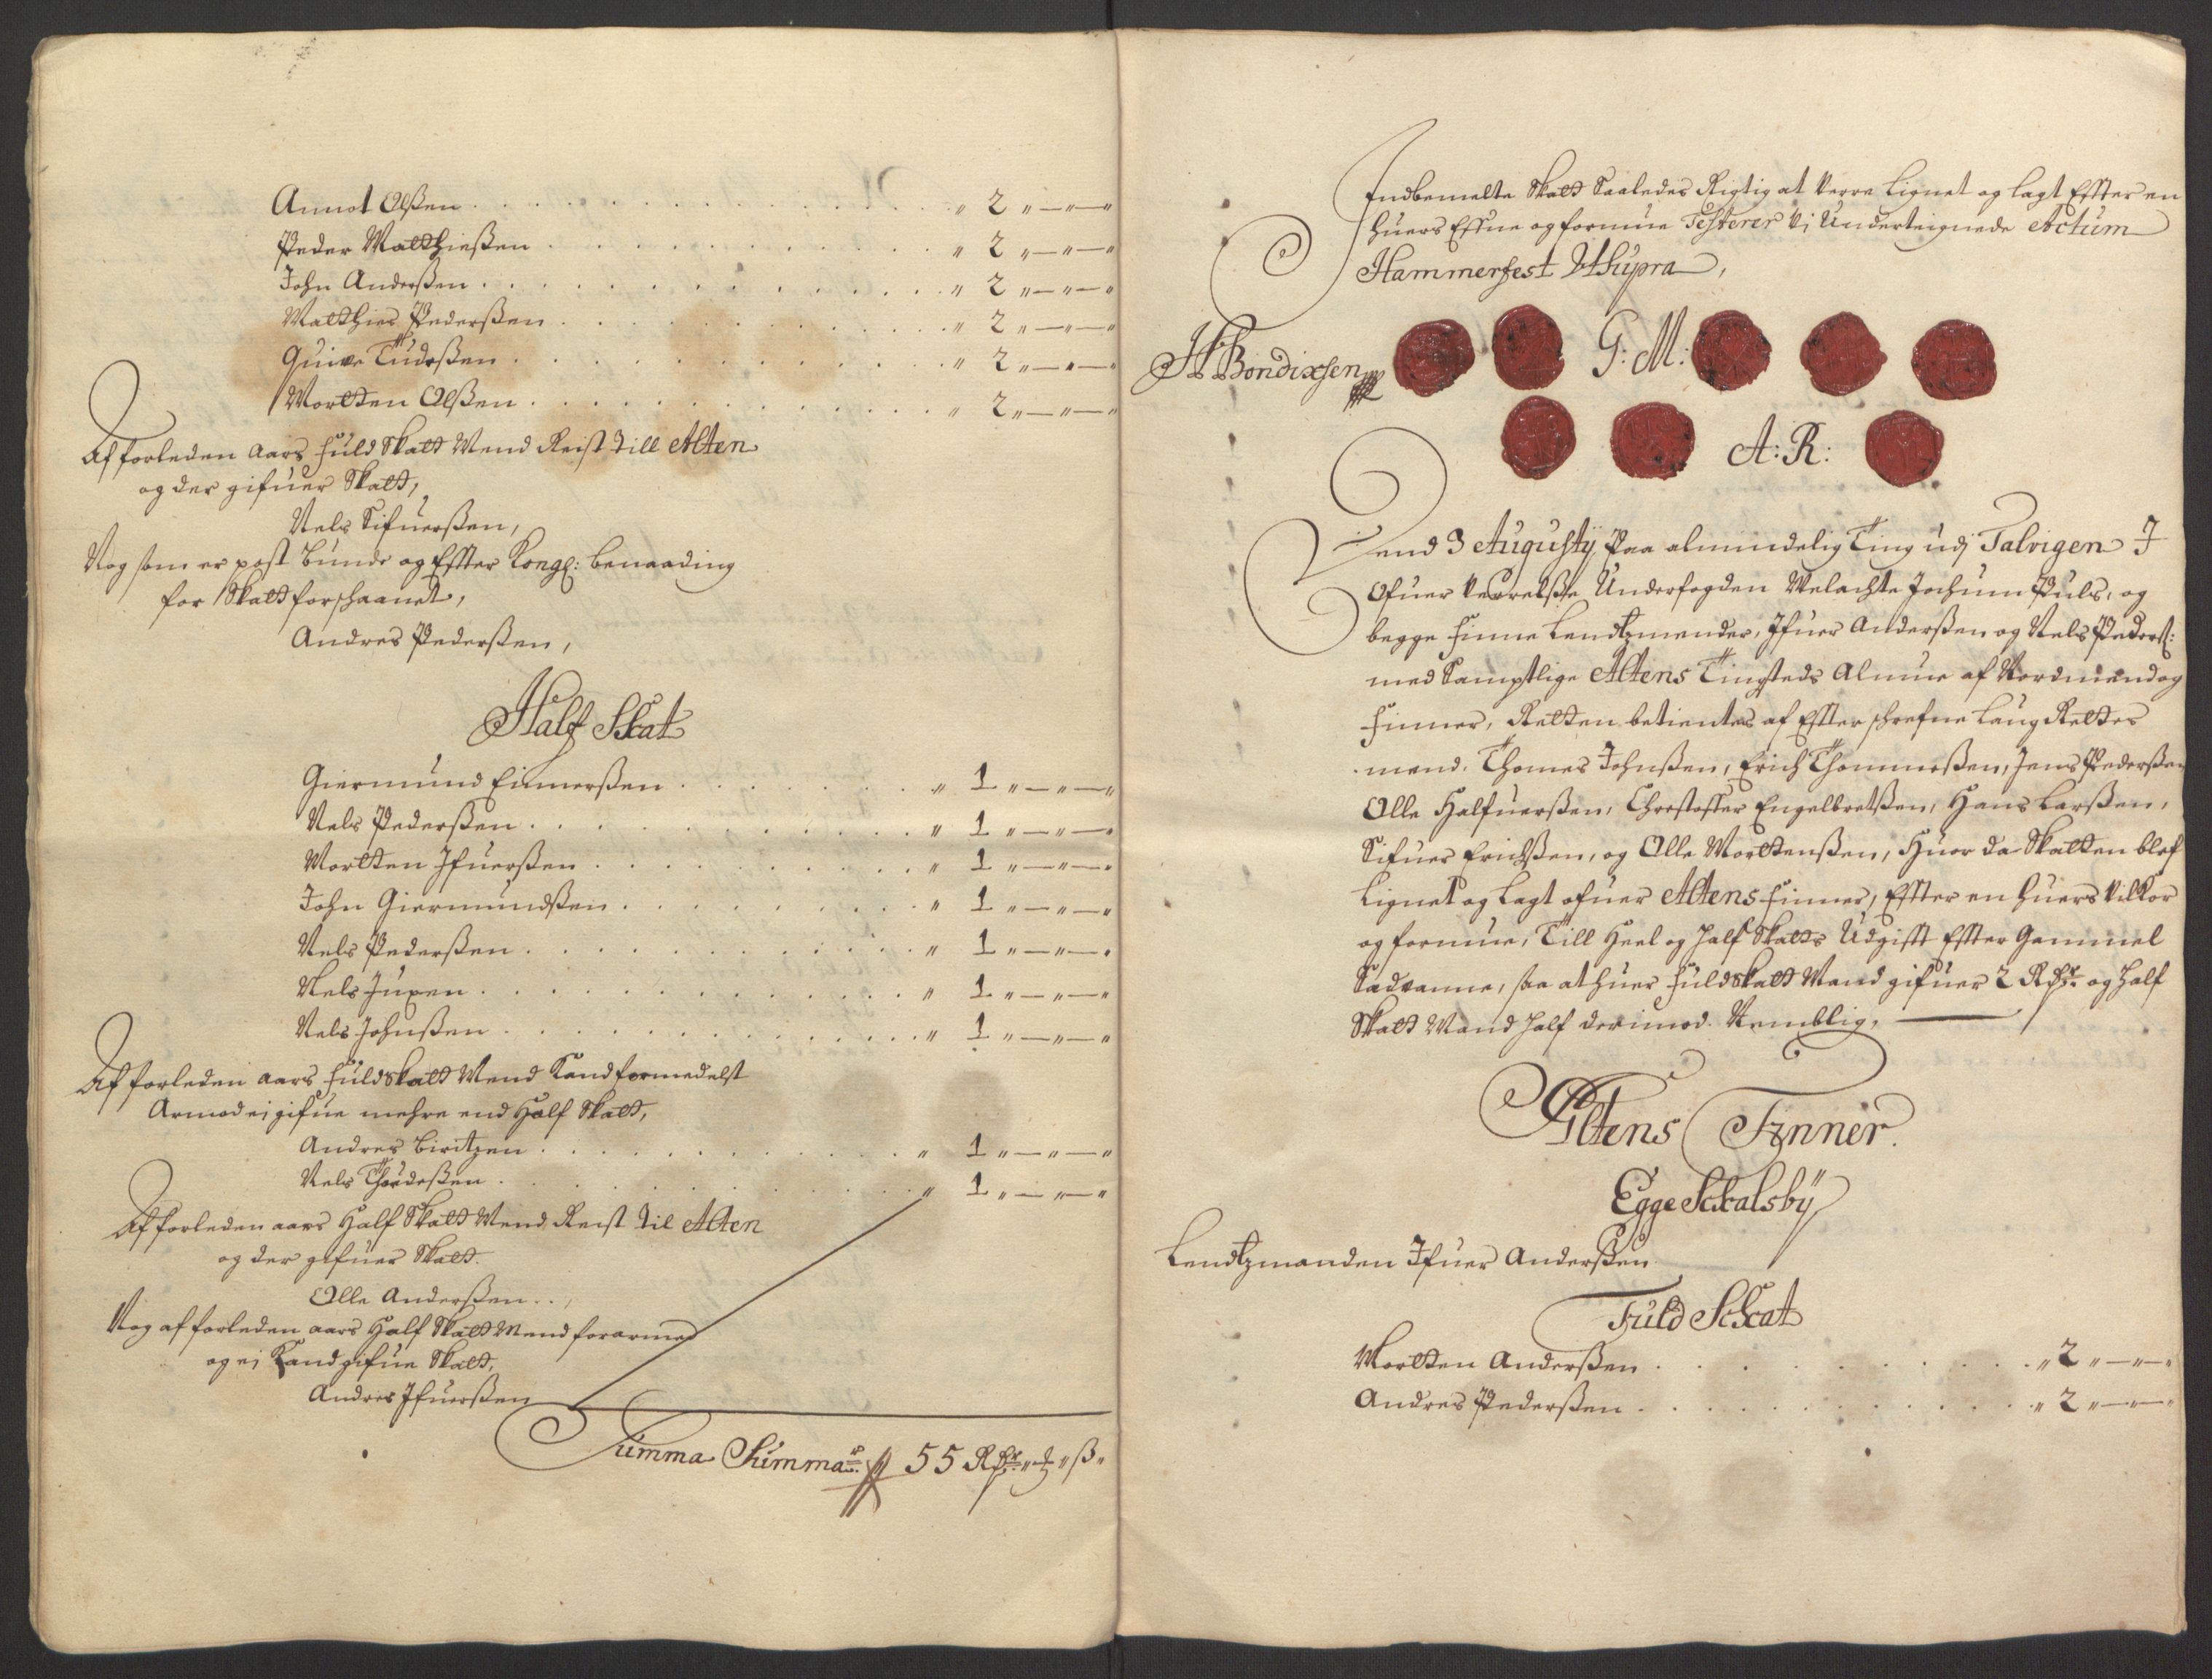 Annot Olßen . . . " 2 " — " — "
Peder Matthießen . . . " 2 " — " — "
John Anderßen . . . " 2 " — " — "
Matthies Pederßen . . . " 2 " — " — "
Quive Tudeßen . . . " 2 " — " — "
Mortten Olßen . . . " 2 " — " — "
Af forleden aars fuld Skatt Mend Reist till Alten
og der gifuer Skatt,
Nels Sifuerßen,
Nog som er post bunde og Effter Kongl: benaading
for Skatt forschaanet,
Andres Pederßen,
Half Skat
Giermund Einnerßen . . . " 1 " — " — "
Nels Pederßen . . . " 1 " — " — "
Mortten Ifuerßen . . . " 1 " — " — "
John Giermundßen . . . " 1 " — " — "
Nels Pederßen . . . " 1 " — " — "
Nels Juxen . . . " 1 " — " — "
Nels Johnßen . . . " 1 " — " — "
Af forleden aars fuldskatt Mend Kand formedelst
Armod ej gifue mehre end Half Skatt,
Andres Biritzen . . . " 1 " — " — "
Nels Thordeßen . . . " 1 " — " — "
Af forleden aars Half Skatt Mend, Reist til Alten
og der gifuer Skatt.
Olle Anderßen . . ,
Nog af forleden aars Half Skatt Mend forarmed
og ej Kand gifue Skatt,
Andres Ifuerßen
Summa Summar: 55 Rdr " " ß "
Indbemelte Skatt Saaledes Rigtig at verre Lignet og lagt Effter en
huers Effne og formue Testerer Vi Underteignede Actum
Hammerfest Ut Supra,
H Bendixsen G: M:
A: R:
Dend 3 Augusty Paa almindelig Ting udj Talvigen I
Ofuer verrelße Underfogden Velachte Jochum Puls, og
begge finne Lendtzmender, Ifuer Anderßen og Nels Pederß:
med Samptlige Altens Tingsteds Almue af Nordmend og
finner, Retten betientes af Effterschrefne Laug Rettes
mend. Thomes Johnßen, Erich Thommeßen, Jens Pederßen
Olle Halfuerßen, Chrestoffer Engelbretßen, Hans Larßen,
Sifuer Erichßen, og Olle Morttenßen, Huor da Skatten blef
Lignet og Lagt ofuer Altens finner, Effter en huers vilkor
og formue, Till Heel og half Skatts Udgifft Effter Gammel
Sedvanne, saa at huer fuldskatt Mand gifuer 2 Rdr og half
Skatt Mand half derimod. Nemblig,
Altens Finner.
Egge Skalsbÿ
Lendtzmanden Ifuer Anderßen
Fuld Schat
Mortten Anderßen . . . " 2 " — " — "
Andres Pederßen . . . " 2 " — " — "